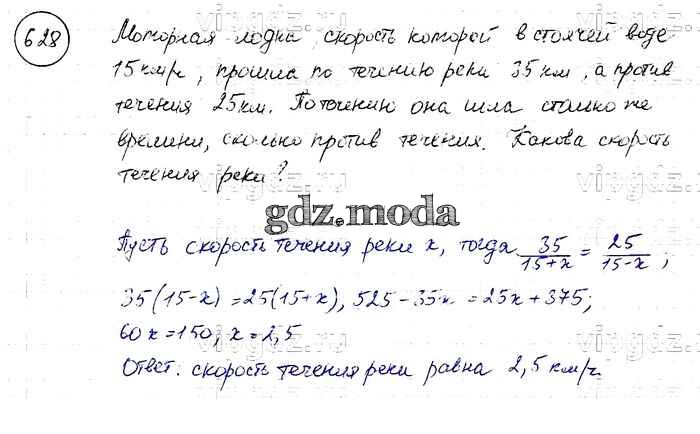 628
Моторная лодка, скорость которой в стоячей воде
15 км/ч, прошла по течению реки 35 км, а против
течения 25 км. По течению она шла столько же
времени, сколько против течения. Какова скорость
течения реки?
gdz.moda
Пусть скорость течения реки x, тогда 35/15+x = 25/15-x;
35(15-x)=25(15+x), 525-35x=25x+375;
60x=150; x=2,5
Ответ. скорость течения реки равна 2,5 км/ч